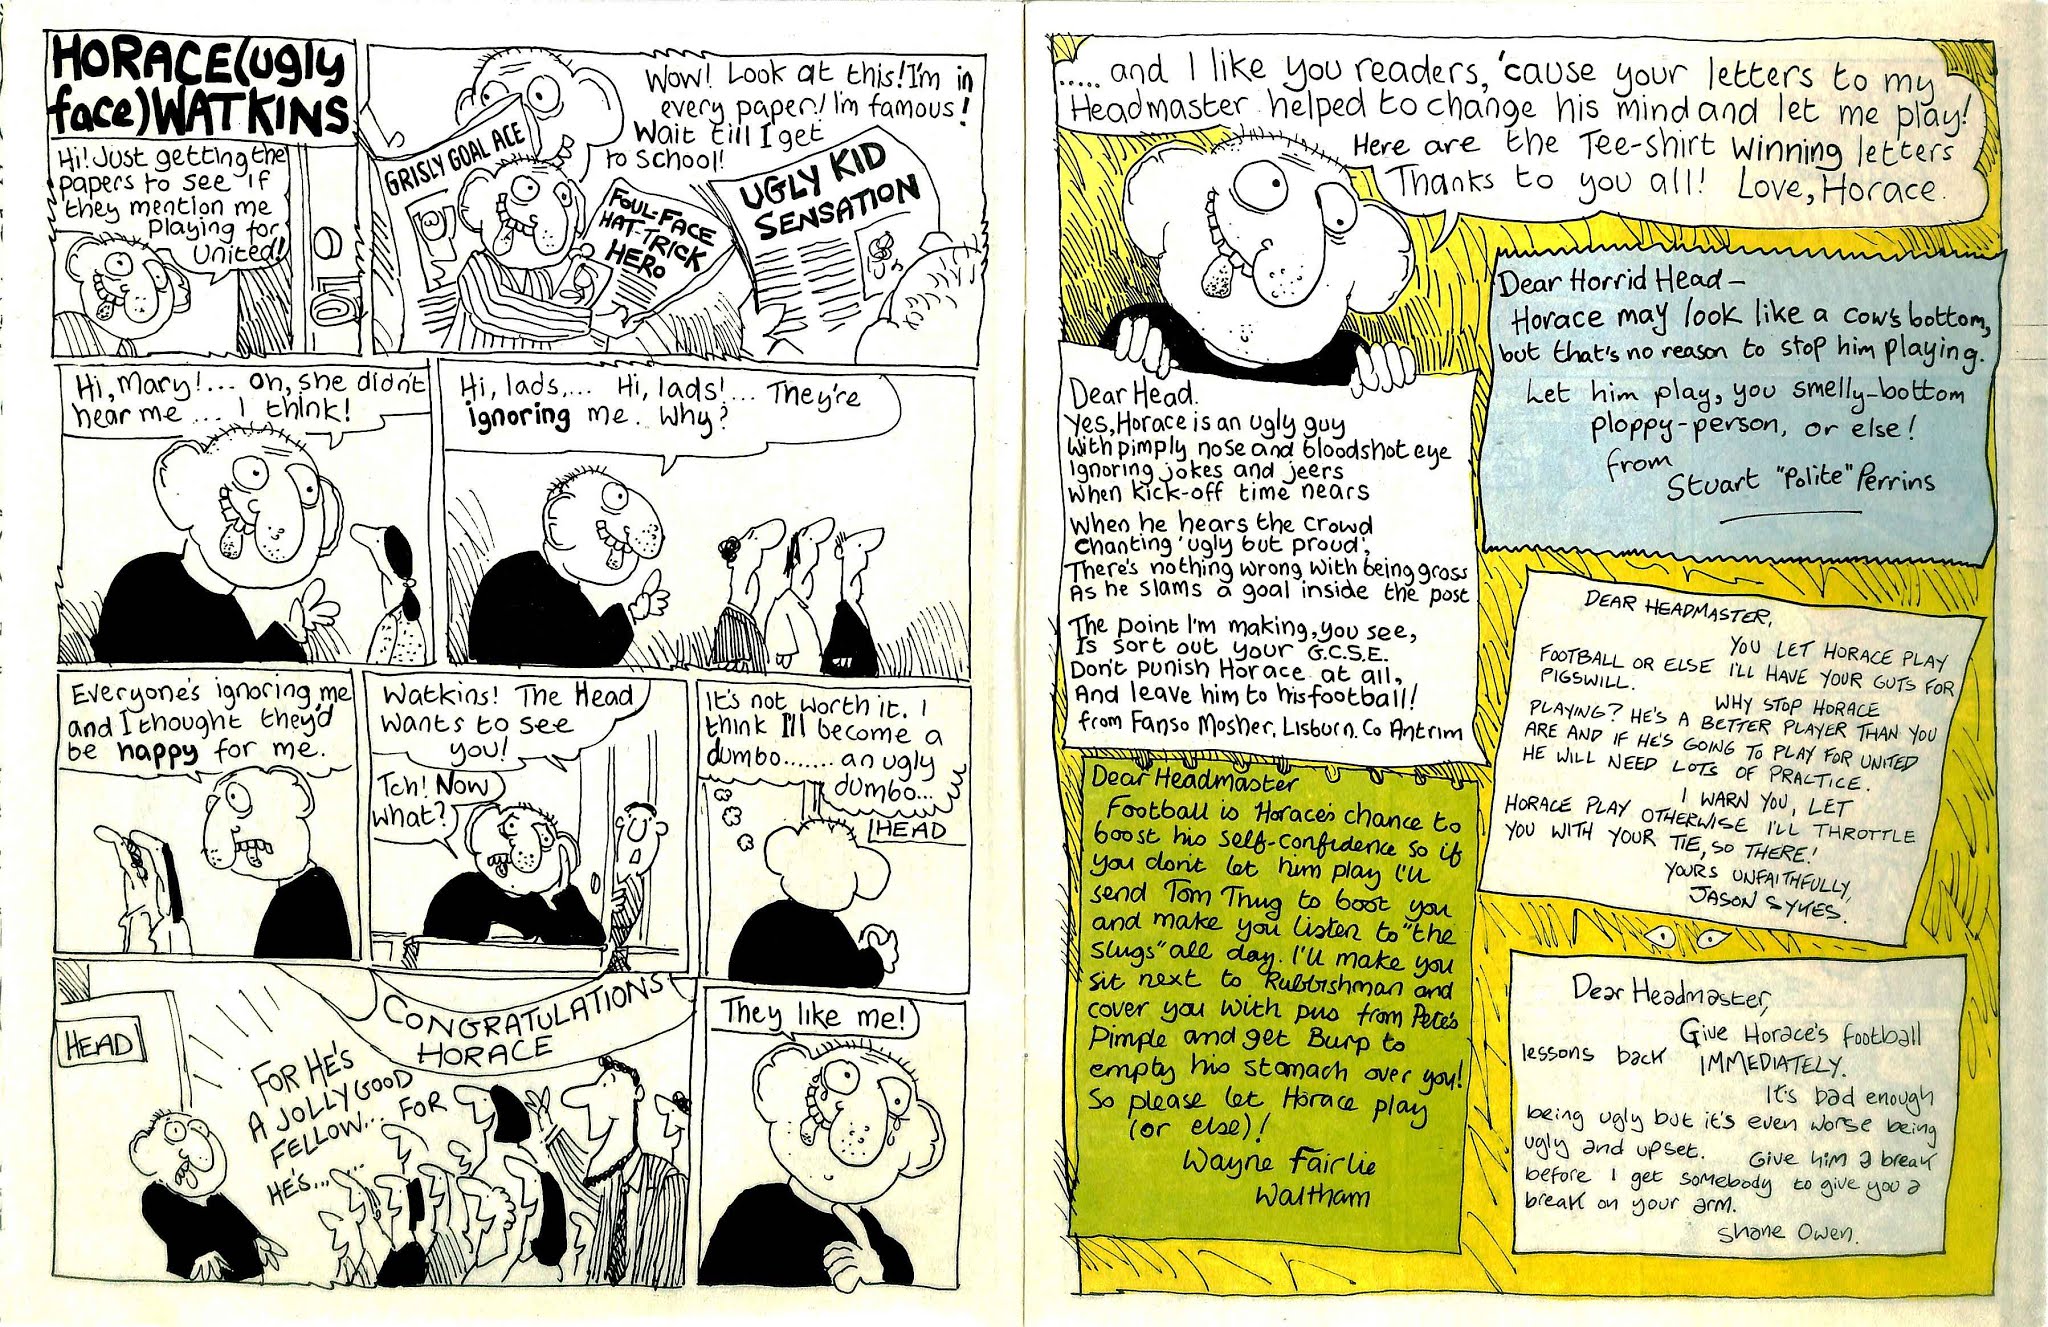 HORACE (ugly
face) WATKINS
Hi! Just getting the
papers to see if
they mention me
playing for
United!
Wow! Look at this! I'm in
every paper! I'm famous!
Wait till I get
to School!
GRISLY GOAL ACE
FOUL-FACE
HAT-TRICK
HERO
UGLY KID
SENSATION
Hi, Mary!... Oh, she didn't
hear me... I think!
Hi, lads,... Hi, lads!... They're
ignoring me. Why?
Everyone's ignoring me
and I thought they'd
be happy for me.
Watkins! The Head
wants to see
you!
Tch! Now
what?
It's not worth it. I
think I'll become a
dumbo....... an ugly
dumbo...
HEAD
HEAD
CONGRATULATIONS
HORACE
FOR HE'S
A JOLLY GOOD
FELLOW... FOR
HE'S......
They like me!
..... and I like you readers, 'cause your letters to my
Headmaster helped to change his mind and let me play!
Here are the Tee-shirt winning letters
Thanks to you all! Love, Horace.
Dear Head.
Yes, Horace is an ugly guy
With pimply nose and bloodshot eye
Ignoring jokes and jeers
When kick-off time nears
When he hears the crowd
Chanting 'ugly but proud',
There's nothing wrong with being gross
As he slams a goal inside the post
The point I'm making, you see,
Is sort out your G.C.S.E.
Don't punish Horace at all,
And leave him to his football!
from Fanso Mosher, Lisburn. Co Antrim
Dear Horrid Head –
Horace may look like a cow's bottom,
but that's no reason to stop him playing.
Let him play, you smelly-bottom
ploppy-person, or else!
from
Stuart "Polite" Perrins
DEAR HEADMASTER,
YOU LET HORACE PLAY
FOOTBALL OR ELSE I'LL HAVE YOUR GUTS FOR
PIGSWILL.
WHY STOP HORACE
PLAYING? HE'S A BETTER PLAYER THAN YOU
ARE AND IF HE'S GOING TO PLAY FOR UNITED
HE WILL NEED LOTS OF PRACTICE.
I WARN YOU, LET
HORACE PLAY OTHERWISE I'LL THROTTLE
YOU WITH YOUR TIE, SO THERE!
YOURS UNFAITHFULLY,
JASON SYKES.
Dear Headmaster
Football is Horace's chance to
boost his self-confidence so if
you don't let him play I'll
send Tom Thug to boot you
and make you listen to "the
slugs" all day. I'll make you
sit next to Rubbishman and
cover you with pus from Pete's
Pimple and get Burp to
empty his stomach over you!
So please let Horace play
(or else)!
Wayne Fairlie
Waltham
Dear Headmaster,
Give Horace's football
lessons back IMMEDIATELY.
It's bad enough
being ugly but it's even worse being
ugly and upset. Give him a break
before I get somebody to give you a
break on your arm.
Shane Owen.